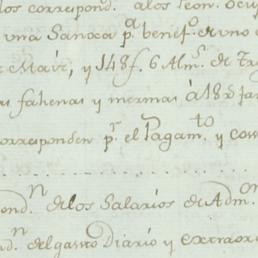 los correspond. alos Peon. ocup
una Sanoca pa. benefo. de uno
e Maíz, y 148f. 6 Alms. de Tri
as fahenas y mermas à 18 r
corresponden pr. el Pagamto. y cos
ondn. delos Salarios de Admon
dn. del gasto Diario y extraor